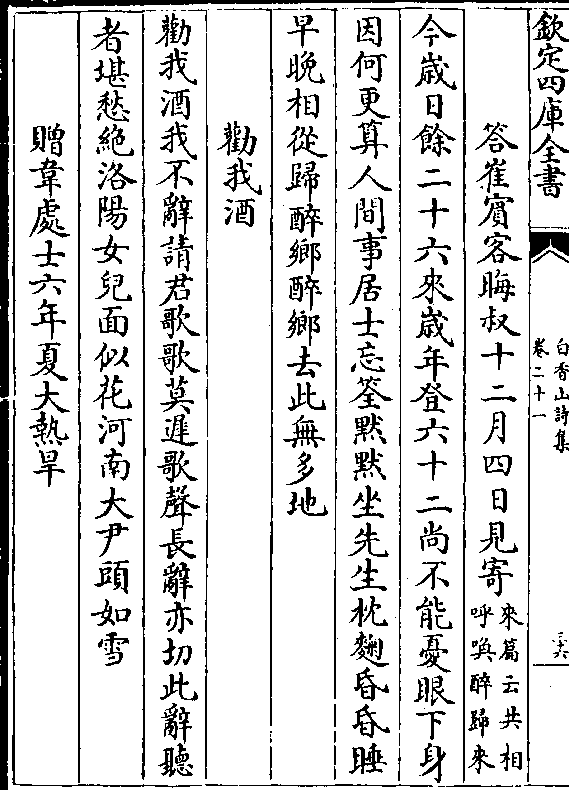 欽定四庫全書
白香山詩集
卷二十一
三六
答崔賓客晦叔十二月四日見寄
來篇云共相
呼喚醉歸來
今歲日餘二十六來歲年登六十二尚不能憂眼下身
因何更算人間事居士忘筌黙黙坐先生枕麴昏昏睡
早晚相從歸醉鄉醉鄉去此無多地
勸我酒
勸我酒我不辭請君歌歌莫遲歌聲長辭亦切此辭聽
者堪愁絶洛陽女兒面似花河南大尹頭如雪
贈韋處士六年夏大熱旱